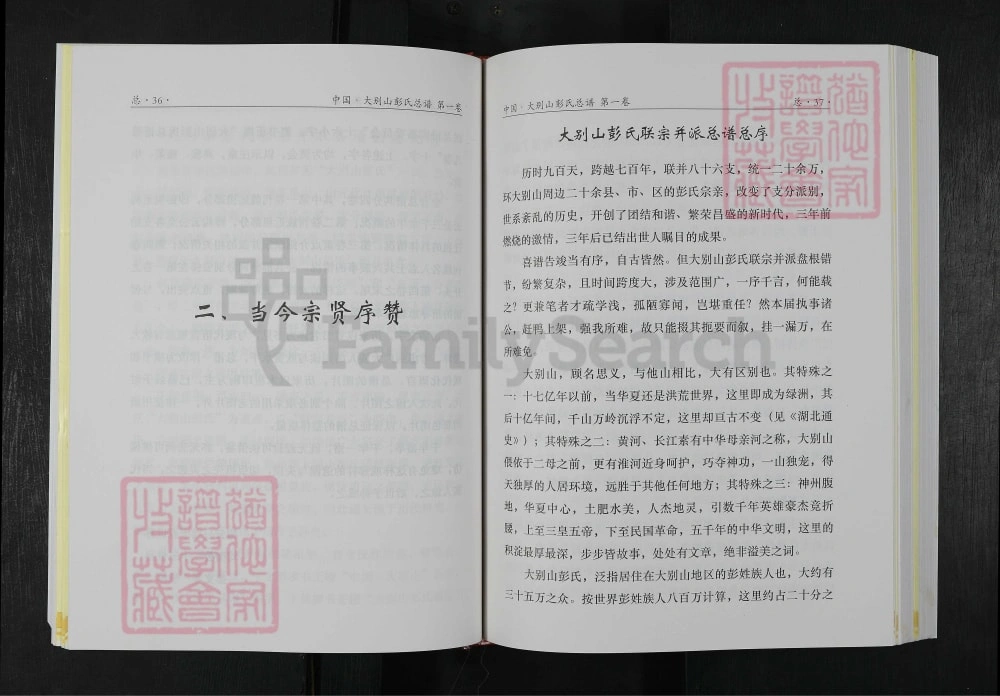 总·36·
中国·大别山彭氏总谱 第一卷
二、当今宗贤序赞
中国·大别山彭氏总谱 第一卷
总·37·
大别山彭氏联宗并派总谱总序
历时九百天，跨越七百年，联并八十六支，统一二十余万，
环大别山周边二十余县、市、区的彭氏宗亲，改变了支分派别，
世系紊乱的历史，开创了团结和谐、繁荣昌盛的新时代，三年前
燃烧的激情，三年后已结出世人瞩目的成果。
喜谱告竣当有序，自古皆然。但大别山彭氏联宗并派盘根错
节，纷繁复杂，且时间跨度大，涉及范围广，一序千言，何能载
之？更兼笔者才疏学浅，孤陋寡闻，岂堪重任？然本届执事诸
公，赶鸭上架，强我所难，故只能掇其扼要而叙，挂一漏万，在
所难免。
大别山，顾名思义，与他山相比，大有区别也。其特殊之
一：十七亿年以前，当华夏还是洪荒世界，这里即成为绿洲，其
后十亿年间，千山万岭沉浮不定，这里却亘古不变（见《湖北通
史》）；其特殊之二：黄河、长江素有中华母亲河之称，大别山
偎依于二母之前，更有淮河近身呵护，巧夺神功，一山独宠，得
天独厚的人居环境，远胜于其他任何地方；其特殊之三：神州腹
地，华夏中心，土肥水美，人杰地灵，引数千年英雄豪杰竞折
腰，上至三皇五帝，下至民国革命，五千年的中华文明，这里的
积淀最厚最深，步步皆故事，处处有文章，绝非溢美之词。
大别山彭氏，泛指居住在大别山地区的彭姓族人也，大约有
三十五万之众。按世界彭姓族人八百万计算，这里约占二十分之
FamilySearch